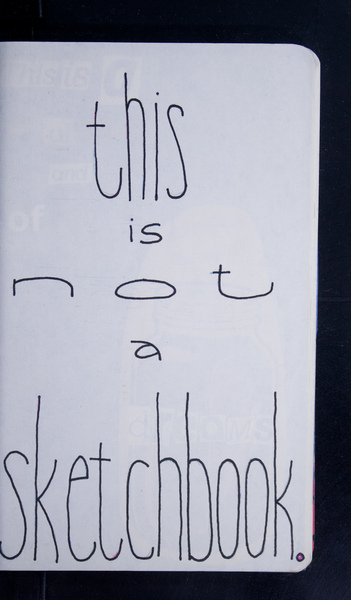 this
is
not
a
sketchbook.